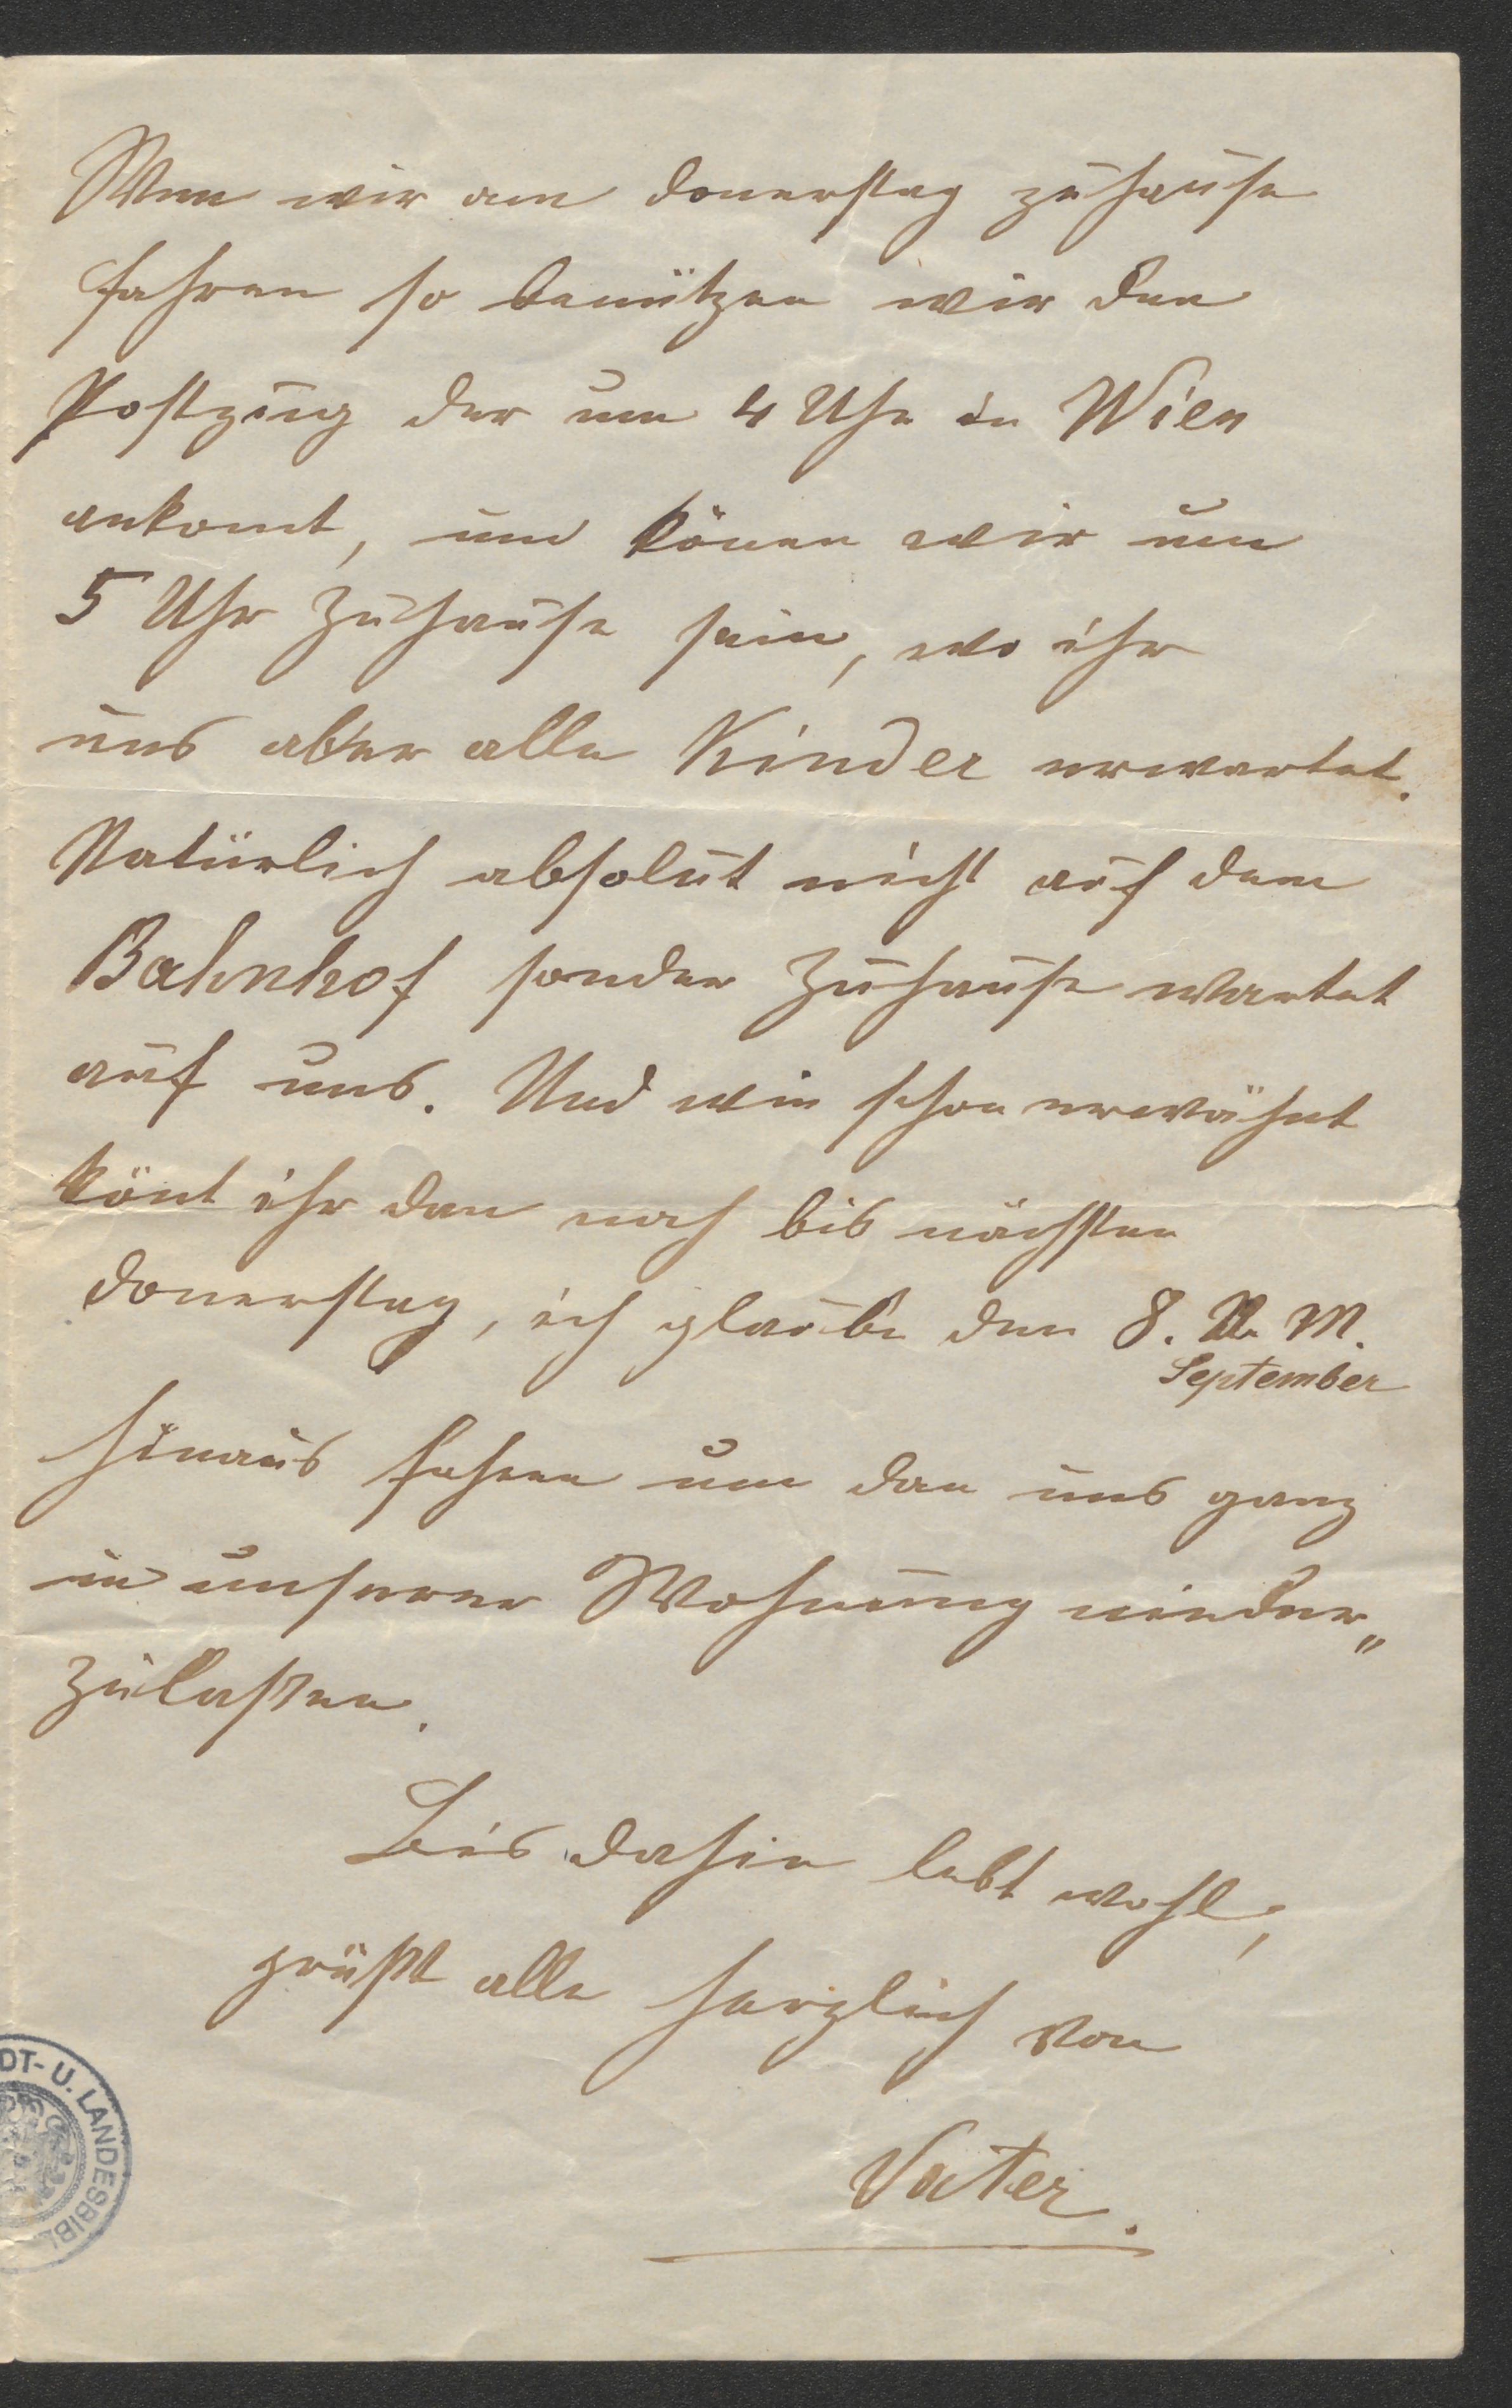 Wen wir am donerstag zuhause
fahren so benützen wir den
Postzug der um 4 Uhr in Wien
ankomt, und könen wir um
5 Uhr zuhause sein, wo ihr
uns aber alle Kinder erwartet.
Natürlich absolut nicht auf dem
Bahnhof sonder zuhause wartet
auf uns. Und wie schon erwähnt
könt ihr dan noch bis nächsten
donerstag, ich glaube den 8. N. M.
September
hinaus fahren um dan uns ganz
in unserer Wohnung nieder„
zulaßen.
Bis dahin lebt wohl,
grüßt alle herzlich von
Vater.
DT- U. LANDESBIBL